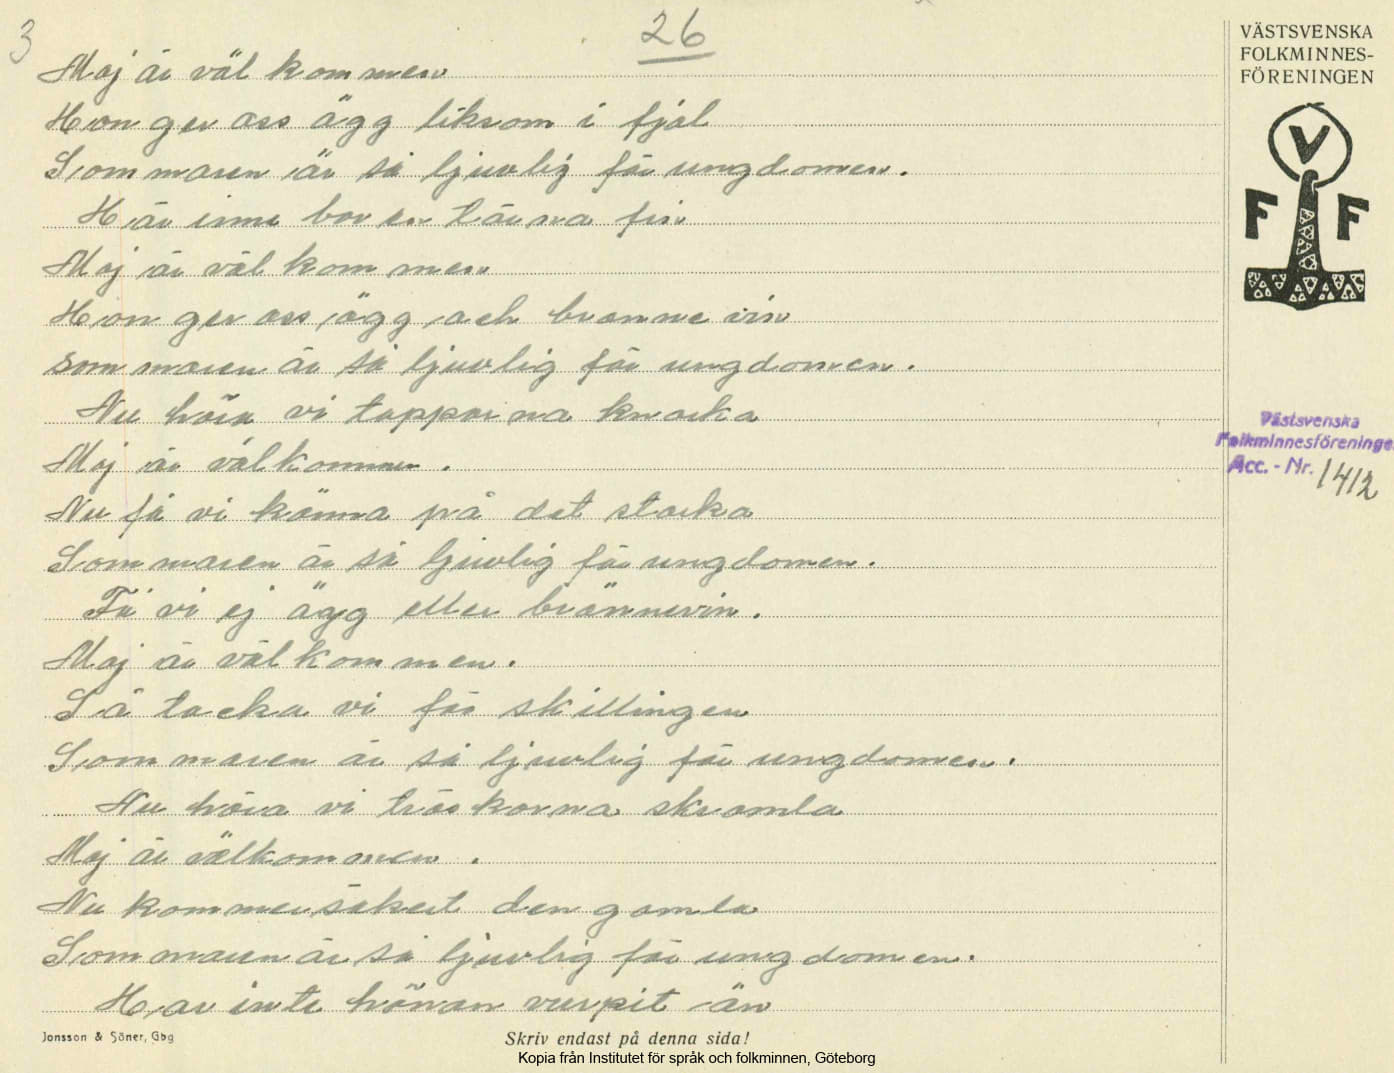 3
26
Maj är väl kommen
Hon ger oss ägg liksom i fjål
Sommaren är så ljuvlig för ungdomen.
Här inne bor en tärna fin
Maj är väl kommen
Hon ger oss ägg och bränne vin
sommaren är så ljuvlig för ungdomen.
Nu höra vi tapparna knarka
Maj är välkommen.
Nu få vi känna på det starka
Sommaren är så ljuvlig för ungdomen.
Få vi ej ägg eller brännevin.
Maj är väl kommen.
Så tacka vi för skillingen
Sommaren är så ljuvlig för ungdomen.
Nu höra vi träskorna skramla
Maj är välkommen.
Nu kommer säkert den gamla
Sommaren är så ljuvlig för ungdomen.
Har inte hönan vurpit än
VÄSTSVENSKA
FOLKMINNES-
FÖRENINGEN
V
F F
Västsvenska
Folkminnesföreninge
Acc. - Nr. 1412
Jonsson & Söner, Gbg
Skriv endast på denna sida!
Kopia från Institutet för språk och folkminnen, Göteborg